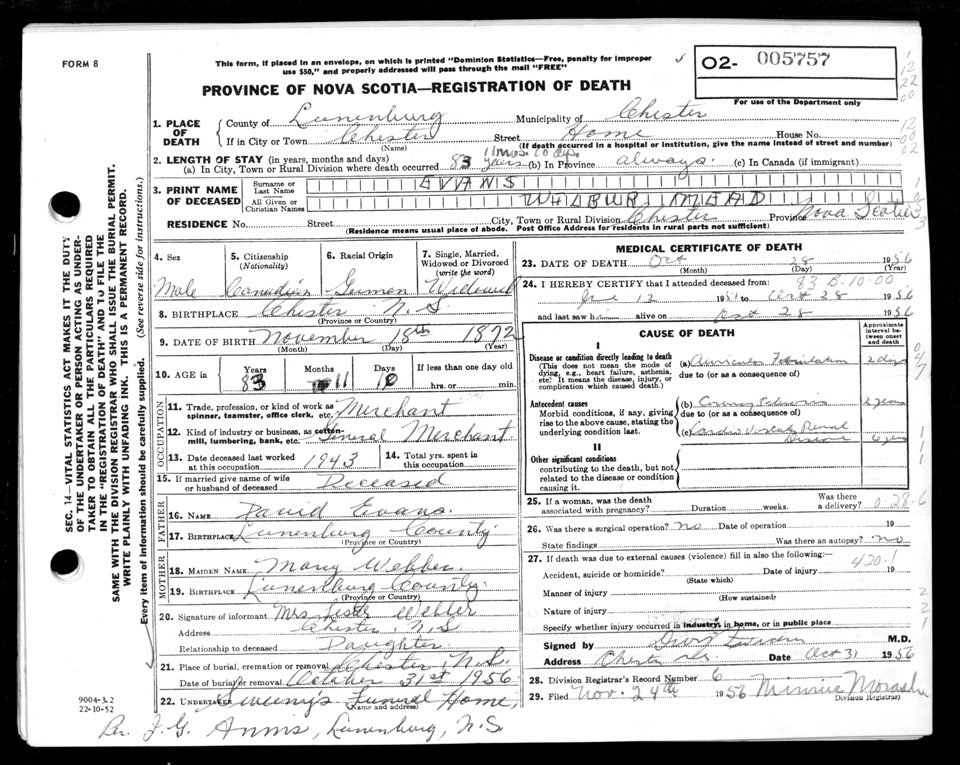 FORM 8
This form, if placed in an envelope, on which is printed "Dominion Statistics—Free, penalty for improper
use $50," and properly addressed will pass through the mail "FREE"
02- 005757
For use of the Department only
PROVINCE OF NOVA SCOTIA—REGISTRATION OF DEATH
1. PLACE OF DEATH
County of Lunenburg Municipality of Chester
If in City or Town Chester Street Home House No.
(Name) (If death occurred in a hospital or institution, give the name instead of street and number)
2. LENGTH OF STAY (in years, months and days) 11 mos. 10 days
(a) In City, Town or Rural Division where death occurred 83 years (b) In Province always. (c) In Canada (if immigrant)
3. PRINT NAME OF DECEASED
Surname or Last Name EVANS
All Given or Christian Names WILBUR MEAD
RESIDENCE No. Street City, Town or Rural Division Chester Province Nova Scotia
(Residence means usual place of abode. Post Office Address for residents in rural parts not sufficient)
4. Sex Male
5. Citizenship (Nationality) Canadian
6. Racial Origin German
7. Single, Married, Widowed or Divorced (write the word) Widowed
8. BIRTHPLACE Chester N.S
(Province or Country)
9. DATE OF BIRTH November 18th 1872
(Month) (Day) (Year)
10. AGE in Years 83 Months 11 Days 10 If less than one day hrs. or min.
OCCUPATION
11. Trade, profession, or kind of work as spinner, teamster, office clerk, etc. Merchant
12. Kind of industry or business, as cotton-mill, lumbering, bank, etc. General Merchant.
13. Date deceased last worked at this occupation 1943
14. Total yrs. spent in this occupation
15. If married give name of wife or husband of deceased Deceased
FATHER
16. NAME David Evans
17. BIRTHPLACE Lunenburg County
(Province or Country)
MOTHER
18. MAIDEN NAME Mary Webber
19. BIRTHPLACE Lunenburg County.
(Province or Country)
20. Signature of informant Mrs Webber
Address Chester, N.S
Relationship to deceased Daughter
21. Place of burial, cremation or removal Chester, N.S.
Date of burial or removal October 31st 1956
22. UNDERTAKER Sweeny's Funeral Home,
(Name and address)
Per. J. G. Anms, Lunenburg, N.S.
MEDICAL CERTIFICATE OF DEATH
23. DATE OF DEATH Oct 28 1956
(Month) (Day) (Year)
24. I HEREBY CERTIFY that I attended deceased from: 83 B-10-00.
12 1951 to Oct 28 1956
and last saw him alive on Oct 28 1956
CAUSE OF DEATH
Approximate interval between onset and death
I
Disease or condition directly leading to death
(This does not mean the mode of dying, e.g., heart failure, asthenia, etc. It means the disease, injury, or complication which caused death.)
(a) Auricular Fibrillation 2 days
due to (or as a consequence of)
Antecedent causes
Morbid conditions, if any, giving rise to the above cause, stating the underlying condition last.
(b) Coronary Sclerosis 2 years
due to (or as a consequence of)
(c) Cardio Vascular Renal Disease 6 yrs
II
Other significant conditions contributing to the death, but not related to the disease or condition causing it.
25. If a woman, was the death associated with pregnancy? Duration weeks. Was there a delivery? 0-28-6
26. Was there a surgical operation? no Date of operation 19
State findings Was there an autopsy? no
27. If death was due to external causes (violence) fill in also the following:— 420.1
Accident, suicide or homicide? Date of injury 19
(State which)
Manner of injury
(How sustained)
Nature of injury
Specify whether injury occurred in industry, in home, or in public place
Signed by M.D.
Address Chester N.S. Date Oct 31 1956
28. Division Registrar's Record Number 6
29. Filed Nov. 24th 1956 Minnie
Division Registrar)
SEC. 14—VITAL STATISTICS ACT MAKES IT THE DUTY
OF THE UNDERTAKER OR PERSON ACTING AS UNDER-
TAKER TO OBTAIN ALL THE PARTICULARS REQUIRED
IN THE "REGISTRATION OF DEATH" AND TO FILE THE
SAME WITH THE DIVISION REGISTRAR WHO SHALL ISSUE THE BURIAL PERMIT.
WRITE PLAINLY WITH UNFADING INK. THIS IS A PERMANENT RECORD.
Every item of information should be carefully supplied. (See reverse side for instructions.)
9004-3.2
22-10-52